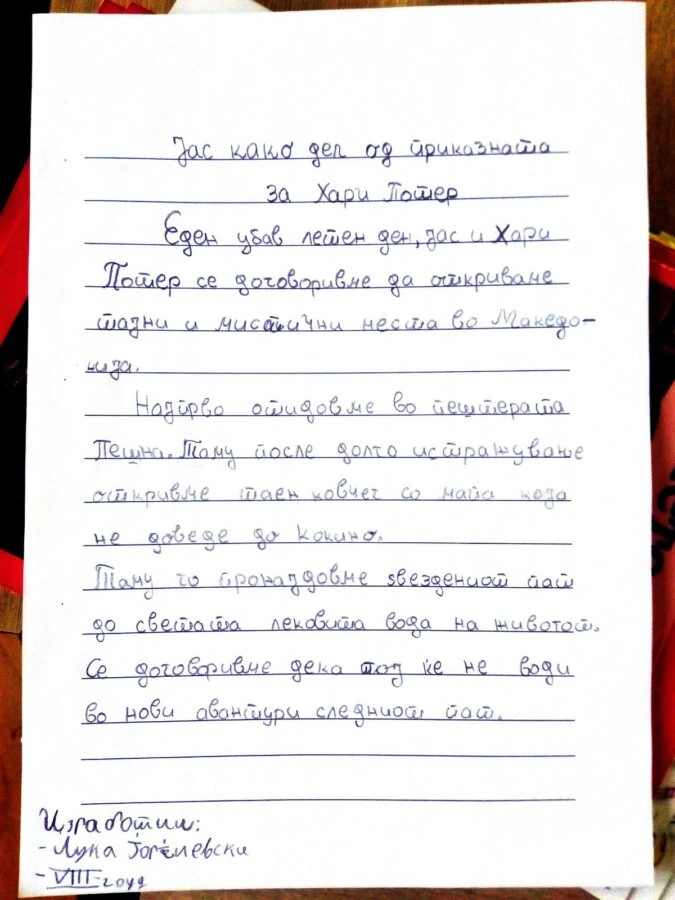 Јас како дел од приказната
за Хари Потер
Еден убав летен ден, јас и Хари
Потер се договоривме да откриваме
тајни и мистични места во Македо-
нија.
Најпрво отидовме во пештерата
Пешна. Таму после долго истражување
откривме таен ковчег со мапа која
не доведе до Кокино.
Таму го пронајдовме ѕвездениот пат
до светата лековита вода на животот.
Се договоривме дека тој ќе не води
во нови авантури следниот пат.
Изработил:
- Лука
- VIII